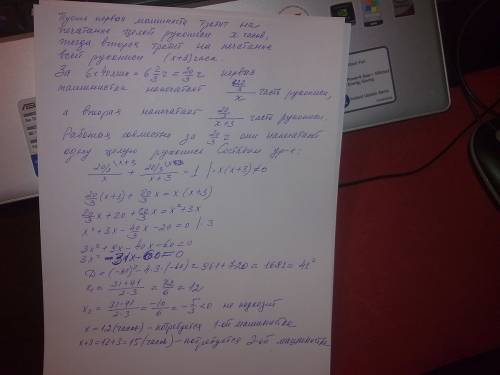 Пусть первая машинистка тратит на
печатание целой рукописи x часов,
тогда вторая тратит на печатание
всей рукописи (x+3) часа.
За 6ч 40 мин = 6 2/3 ч = 20/3 ч первая
машинистка напечатает (20/3)/x часть рукописи,
а вторая напечатает (20/3)/(x+3) часть рукописи.
Работая совместно за 20/3 ч они напечатают
одну целую рукопись. Составим ур-е:
(20/3)/x + (20/3)/(x+3) = 1 | · x(x+3) ≠ 0
20/3 (x+3) + 20/3 x = x(x+3)
20/3 x + 20 + 20/3 x = x² + 3x
x² + 3x - 40/3 x - 20 = 0 | · 3
3x² + 9x - 40x - 60 = 0
3x² - 31x - 60 = 0
D = (-31)² - 4·3·(-60) = 961 + 720 = 1681 = 41²
x₁ = (31+41)/(2·3) = 72/6 = 12
x₂ = (31-41)/(2·3) = -10/6 = -5/3 < 0 не подходит
x = 12 (часов) - потребуется 1-ой машинистке
x+3 = 12+3 = 15 (часов) - потребуется 2-ой машинистке